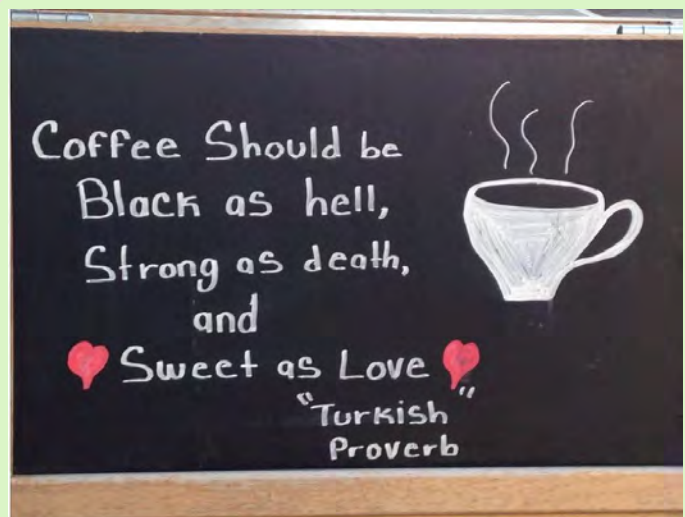 Coffee Should be
Black as hell,
Strong as death,
and
Sweet as Love
"Turkish"
Proverb